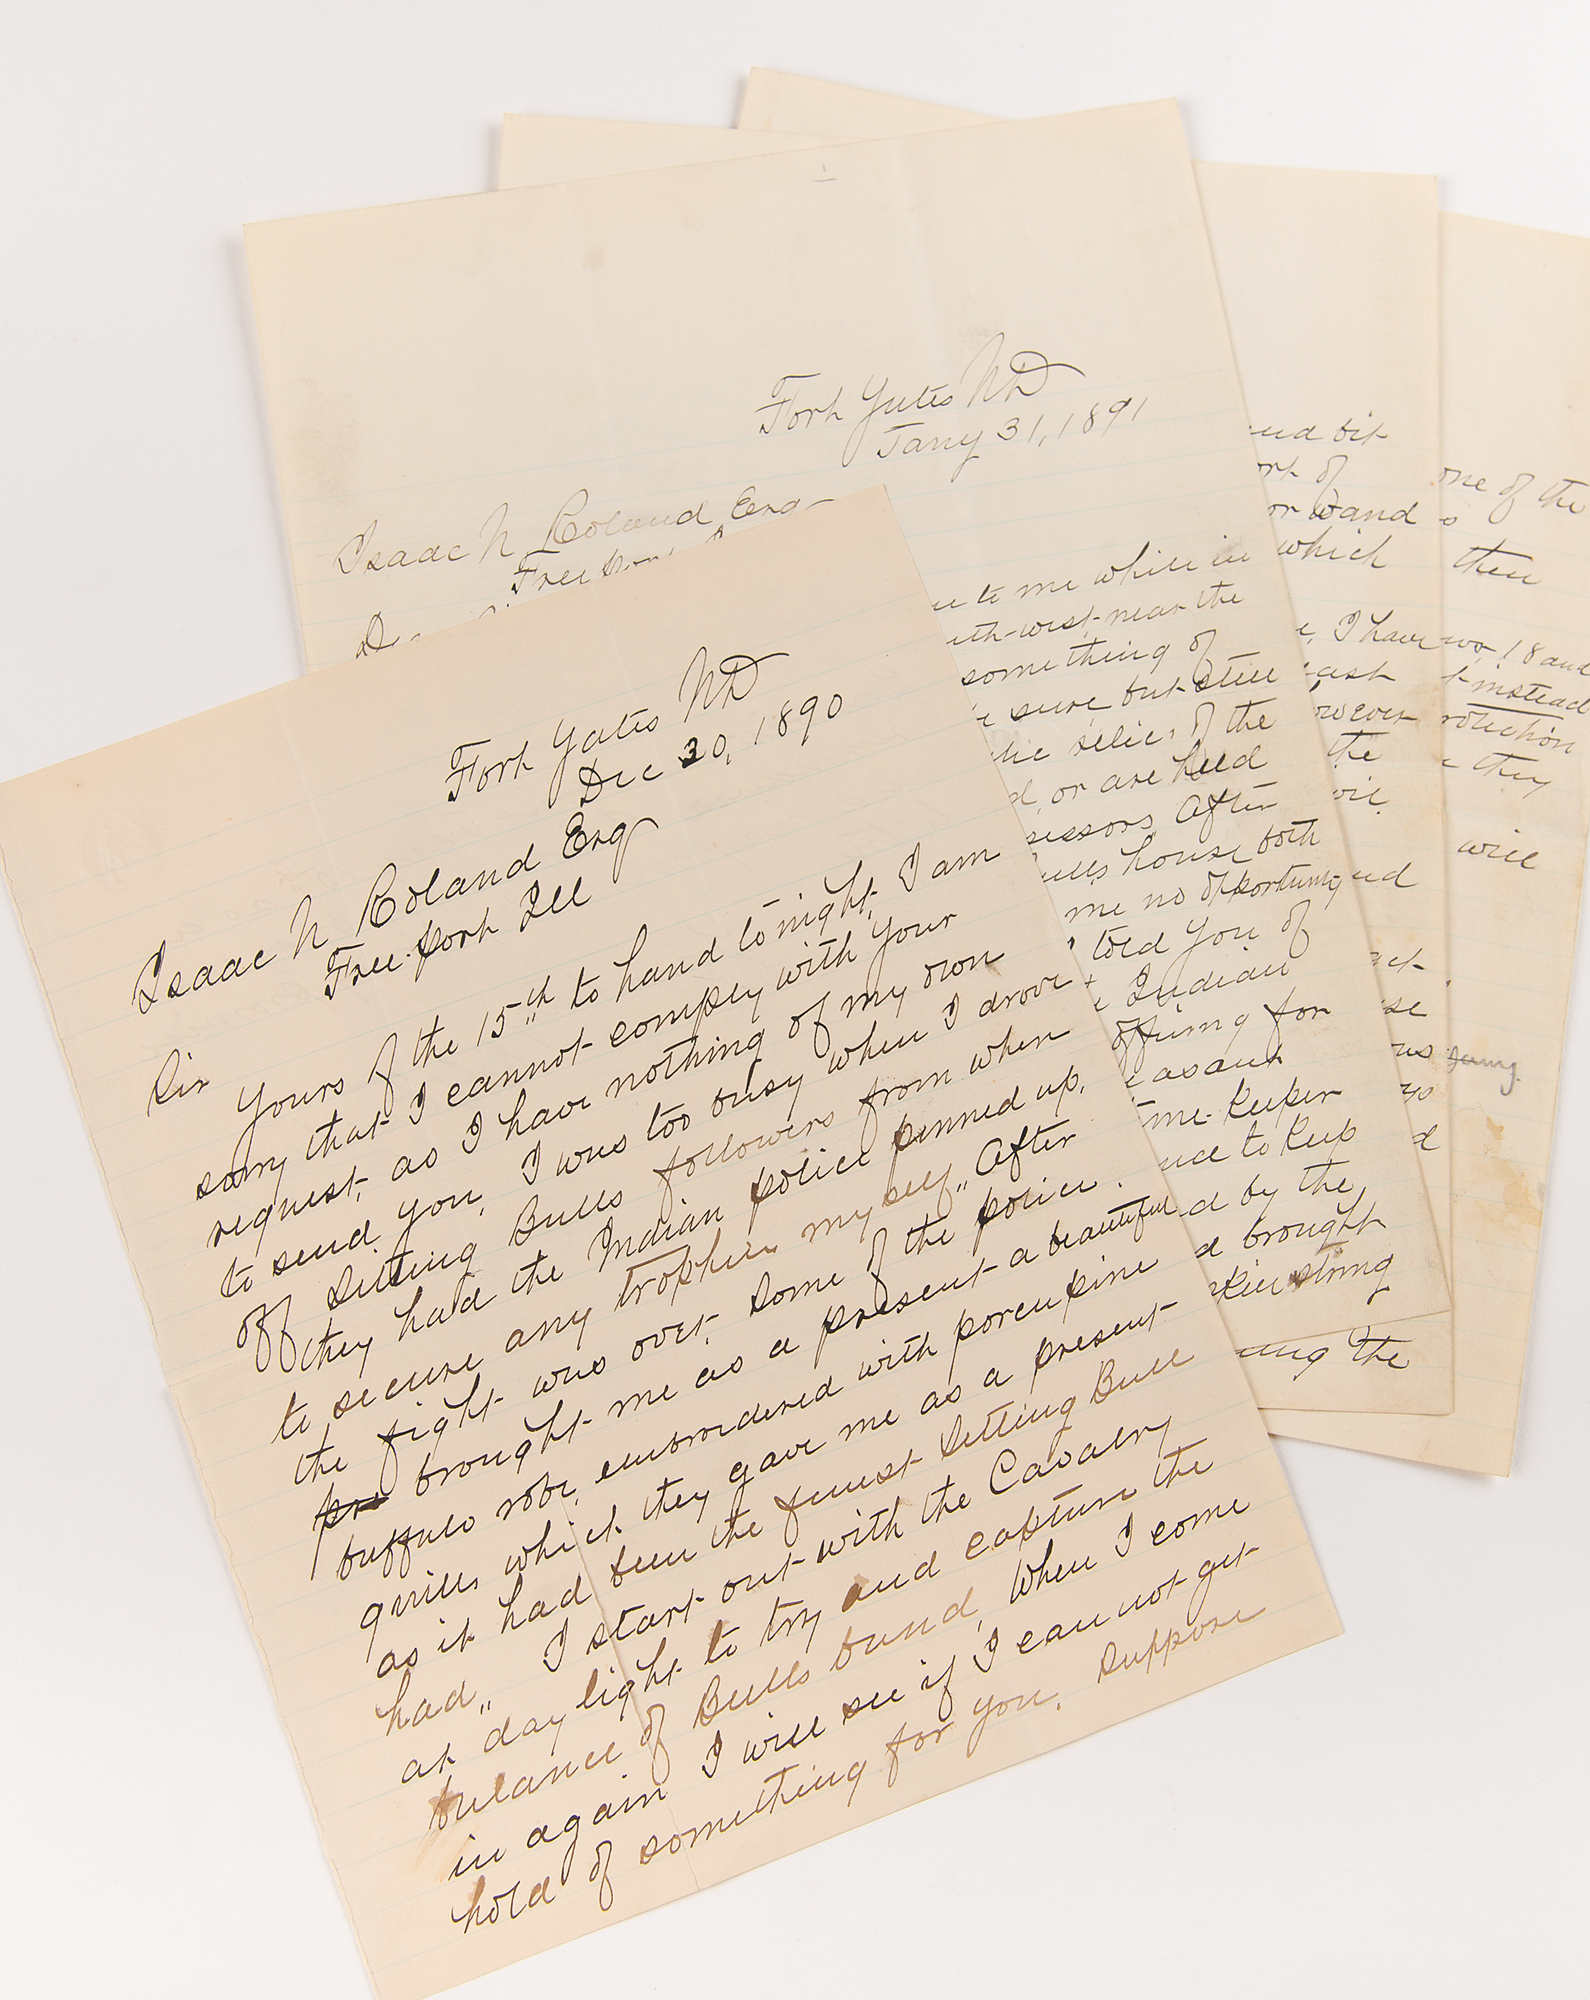 Fort Yates ND
Dec 30, 1890
Isaac N Roland Esq
Free.port Ill
Sir
Yours of the 15"th to hand to night, I am
sorry that I cannot comply with your
request, as I have nothing of my own
to send you, I was too busy when I drove
off Sitting Bulls followers from when
they had the Indian police penned up,
to secure any trophies myself,, After
the fight was over, Some of the police.
brought me as a present a beautiful
buffalo robe, embroidered with porcupine
quills which they gave me as a present
as it had been the finest Sitting Bull
had,, I start out with the Cavalry
at day light to try and capture the
balance of Bulls band, When I come
in again I will see if I can not get
hold of something for you. Suppose
Fort Yates ND
Jany 31, 1891
Isaac N Roland Esq
to me while in
west near the
something of
sure, but still
relic, of the
or are held
After
house both
me no opportunity
told you of
Indian
offering for
me-keeper
to keep
by the
brought
string
bit
of
or wand
which
I have
the
ing the
one of the
then
18 and
instead
they
will